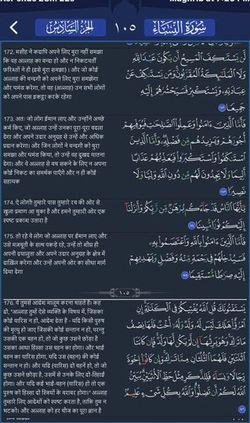 سُورَةُ النِّسَاءِ
١٠٥
الجزء السادس
172. मसीह ने कदापि अपने लिए बुरा नहीं समझा
कि वह अल्लाह का बन्दा हो और न निकटवर्ती
फ़रिश्तों ने ही (इसे बुरा समझा)। और जो कोई
अल्लाह की बन्दगी को अपने लिए बुरा समझेगा
और घमंड करेगा, तो वह (अल्लाह) उन सभी लोगों
को अपने पास इकट्ठा करके रहेगा
لَّن يَسْتَنكِفَ ٱلْمَسِيحُ أَن يَكُونَ عَبْدًا لِّلَّهِ
وَلَا ٱلْمَلَٰٓئِكَةُ ٱلْمُقَرَّبُونَ وَمَن يَسْتَنكِفْ عَنْ
عِبَادَتِهِۦ وَيَسْتَكْبِرْ فَسَيَحْشُرُهُمْ إِلَيْهِ
جَمِيعًا
173. अतः जो लोग ईमान लाए और उन्होंने अच्छे
कर्म किए, सो अल्लाह उन्हें उनका पूरा-पूरा बदला
देगा और अपने उदार अनुग्रह से उन्हें और अधिक
प्रदान करेगा। और जिन लोगों ने बन्दगी को बुरा
समझा और घमंड किया, तो उन्हें वह दुखद यातना
देगा। और वे अल्लाह से बच सकने के लिए न अपना
कोई निकट का समर्थक पाएँगे और न ही कोई
सहायक
فَأَمَّا ٱلَّذِينَ ءَامَنُوا۟ وَعَمِلُوا۟ ٱلصَّٰلِحَٰتِ فَيُوَفِّيهِمْ
أُجُورَهُمْ وَيَزِيدُهُم مِّن فَضْلِهِۦ وَأَمَّا ٱلَّذِينَ
ٱسْتَنكَفُوا۟ وَٱسْتَكْبَرُوا۟ فَيُعَذِّبُهُمْ عَذَابًا
أَلِيمًا وَلَا يَجِدُونَ لَهُم مِّن دُونِ ٱللَّهِ وَلِيًّا وَلَا
نَصِيرًا
174. ऐ लोगो! तुम्हारे पास तुम्हारे रब की ओर से
खुला प्रमाण आ चुका है और हमने तुम्हारी ओर एक
स्पष्ट प्रकाश उतारा है।
يَٰٓأَيُّهَا ٱلنَّاسُ قَدْ جَآءَكُم بُرْهَٰنٌ مِّن رَّبِّكُمْ وَأَنزَلْنَآ
إِلَيْكُمْ نُورًا مُّبِينًا
175. तो रहे वे लोग जो अल्लाह पर ईमान लाए और
उसे मज़बूती के साथ पकड़े रहे, उन्हें तो शीघ्र ही
अपनी दयालुता और अपने उदार अनुग्रह के क्षेत्र में
दाखिल करेगा और उन्हें अपनी ओर का सीधा मार्ग
दिखा देगा
فَأَمَّا ٱلَّذِينَ ءَامَنُوا۟ بِٱللَّهِ وَٱعْتَصَمُوا۟ بِهِۦ
فَسَيُدْخِلُهُمْ فِى رَحْمَةٍ مِّنْهُ وَفَضْلٍ وَيَهْدِيهِمْ
إِلَيْهِ صِرَٰطًا مُّسْتَقِيمًا
١٠٥
176. वे तुमसे आदेश मालूम करना चाहते हैं। कह
दो, "अल्लाह तुम्हें ऐसे व्यक्ति के विषय में, जिसका
कोई वारिस न हो, आदेश देता है - यदि किसी पुरुष
की मृत्यु हो जाए जिसकी कोई सन्तान न हो, परन्तु
उसकी एक बहन हो, तो जो कुछ उसने छोड़ा है
उसका आधा हिस्सा उस बहन का होगा। और भाई
बहन का वारिस होगा, यदि उस (बहन) की कोई
सन्तान न हो। और यदि (वारिस) दो बहनें हों, तो जो
कुछ उसने छोड़ा है, उसमें से उनके लिए दो-तिहाई
होगा। और यदि कई भाई-बहन (वारिस) हो तो एक
पुरुष को हिस्सा दो स्त्रियों के बराबर होगा।" अल्लाह
तुम्हारे लिए आदेशों को स्पष्ट करता है, ताकि तुम न
भटको। और अल्लाह को हर चीज का पूरा ज्ञान है
يَسْتَفْتُونَكَ قُلِ ٱللَّهُ يُفْتِيكُمْ فِى ٱلْكَلَٰلَةِ إِنِ
ٱمْرُؤٌا۟ هَلَكَ لَيْسَ لَهُۥ وَلَدٌ وَلَهُۥٓ أُخْتٌ فَلَهَا نِصْفُ
مَا تَرَكَ وَهُوَ يَرِثُهَآ إِن لَّمْ يَكُن لَّهَا وَلَدٌ فَإِن كَانَتَا
ٱثْنَتَيْنِ فَلَهُمَا ٱلثُّلُثَانِ مِمَّا تَرَكَ وَإِن كَانُوٓا۟ إِخْوَةً
رِّجَالًا وَنِسَآءً فَلِلذَّكَرِ مِثْلُ حَظِّ ٱلْأُنثَيَيْنِ يُبَيِّنُ
ٱللَّهُ لَكُمْ أَن تَضِلُّوا۟ وَٱللَّهُ بِكُلِّ شَىْءٍ عَلِيمٌۢ